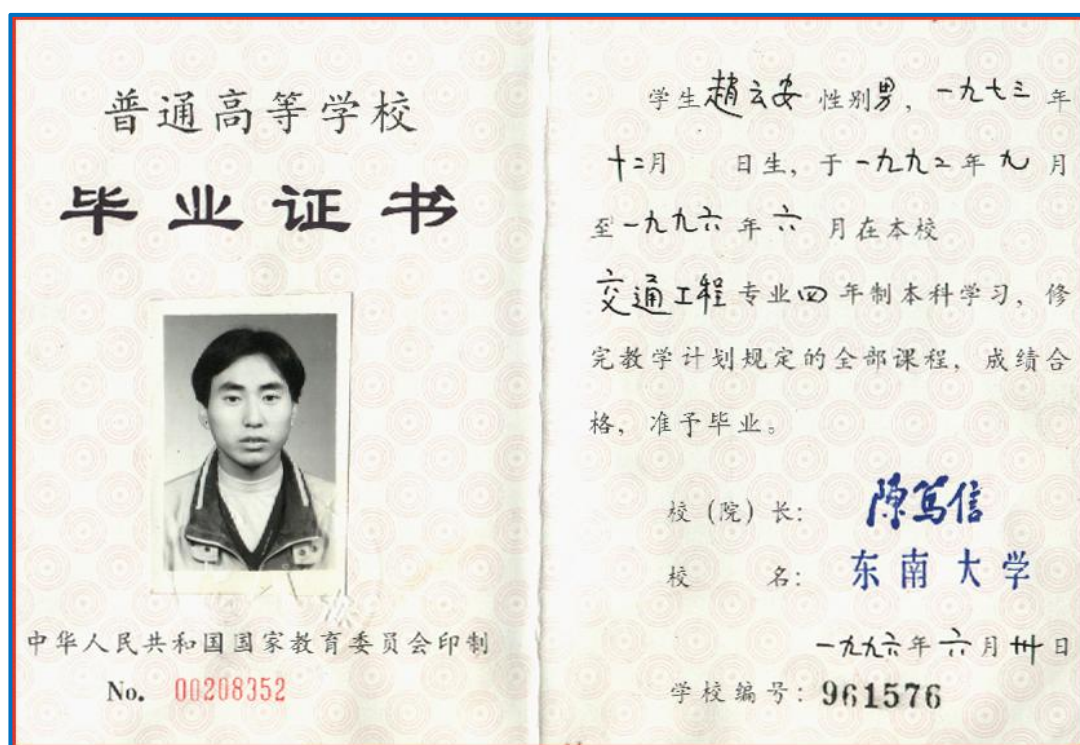 普通高等学校
毕业证书
中华人民共和国国家教育委员会印制
No. 00208352
学生趙云安 性别男，一九七三年
十二月 日生，于一九九二年九月
至一九九六年六月在本校
交通工程专业四年制本科学习，修
完教学计划规定的全部课程，成绩合
格，准予毕业。
校（院）长：陳笃信
校 名：东南大学
一九九六年六月卅日
学校编号：961576